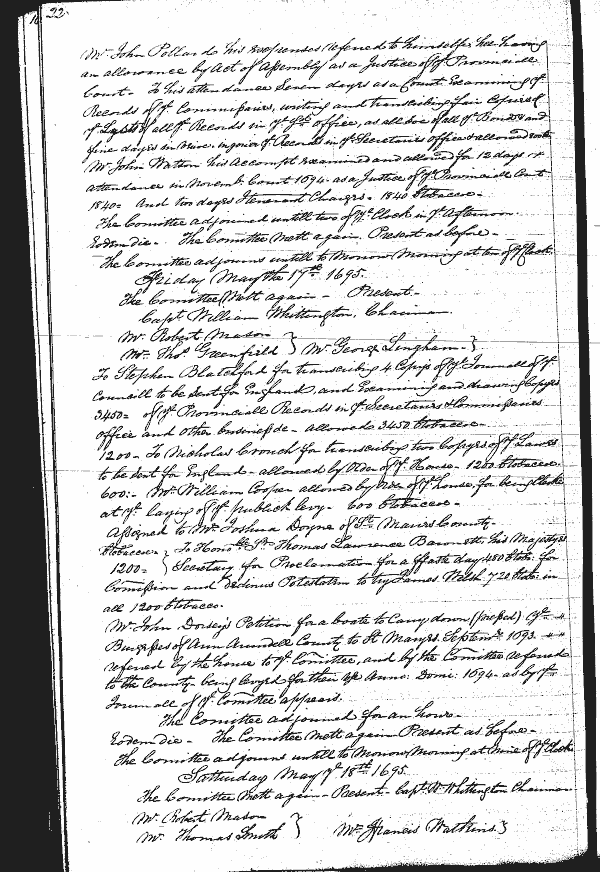 22
Mr John Pollard his expenses referred to himselfe hee having
an allowance by Act of Assembly as a Justice of ye Provinciall
Court. To his attendance Seven dayes as a Court Examining ye
Records of ye Commissaries, writing and transcribing fair Copies of
ye Lists of all ye Records in ye office, as also of all ye Bonds and
five dayes in ye Records in ye Secretaries office & allowed
Mr John Watton his Accompt examined and allowed for 12 days
attendance in Novembr Court 1694 as a Justice of ye Provinciall Court
1840= And two dayes Itenerant Charges - 1840 ltobaccoe -
The Comittee adjourned untill two of ye Clock in ye Afternoon
Eodem die - The Comittee Mett again Present as before -
The Comittee adjourns untill to Morrow Morning at ten of ye Clock
Friday May the 17th 1695.
The Comittee Mett again - Present -
Capt William Whittington, Chairman
Mr Robert Mason
Mr Tho: Greenfield } Mr George Lingham - }
To Stephen Blatchford for transcribing 4 Copys of ye Journall of ye
Councill to be sent for England, and Examining and drawing Copys
3450= of ye Provinciall Records in ye Secretaries & Commissaries
office and other business &c - allowed 3450 ltobaccoe -
1200 - To Nicholas Crouch for transcribing two Copyes of ye Lawes
to be sent for England - allowed by Order of ye House - 1200 ltobaccoe
600:- Mr William Cooper allowed by Order of ye house, for being Clerk
at ye laying of ye publick Levy - 600 ltobaccoe -
Assigned to Mr Joshua Doyne of St Maries County -
ltobaccoe - } To Honoble Sr Thomas Lawrence Baronett, his Majestys
1200= } Secretary for Proclamation for a ffaste day 480 ltob: for
Comission and Dedimus Potestatem to try James Welsh 720 ltob: in
all 1200 ltobacco.
Mr John Dorseys Petition for a boate to Carry down (pressed) ye
Burgesses of Ann Arundell County to St Marys. Septemr 1693
referred by the house to ye Comittee, and by the Comittee referred
to the County being levyed for their use Anno: Domi: 1694 as by ye
Journall of ye Comittee appears.
The Comittee adjourned for an hour -
Eodem die - The Comittee Mett again Present as before -
The Comittee adjourns untill to Morrow Morning at Nine of ye Clock
Satturday May ye 18th 1695.
The Comittee Mett again - Present - Capt W Whittington Chairman
Mr Robert Mason
Mr Thomas Smith } Mr Francis Watkins }